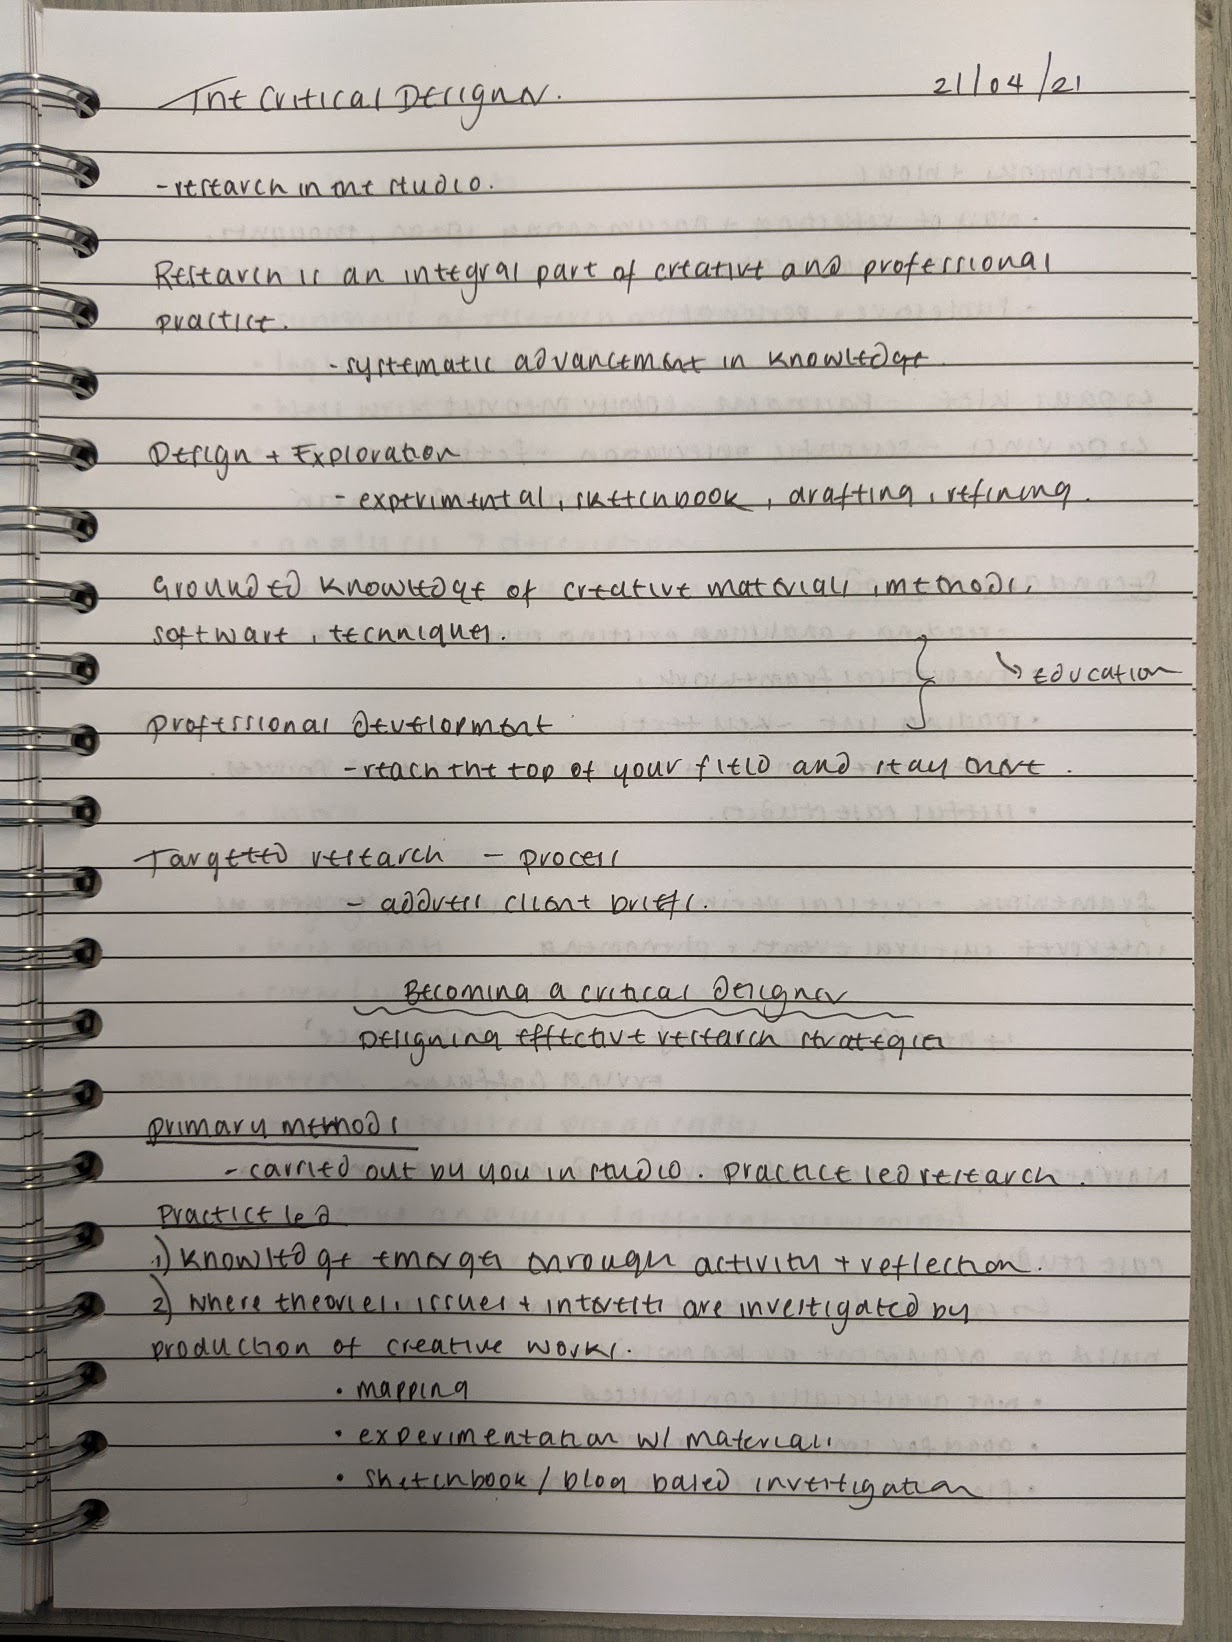 The Critical Designer. 21/04/21
- research in the studio.
Research is an integral part of creative and professional
practice.
- systematic advancement in knowledge.
Design + Exploration
- experimental, sketchbook, drafting, refining.
Grounded knowledge of creative materials, methods,
software, techniques.
↳ education
professional development
- reach the top of your field and stay there.
Targeted research - process
- address client briefs.
Becoming a critical designer
Designing effective research strategies
primary methods
- carried out by you in studio. practice led research.
practice led
1) knowledge emerges through activity + reflection.
2) where theories, issues + interests are investigated by
production of creative works.
• mapping
• experimentation w/ materials
• sketchbook / blog based investigation